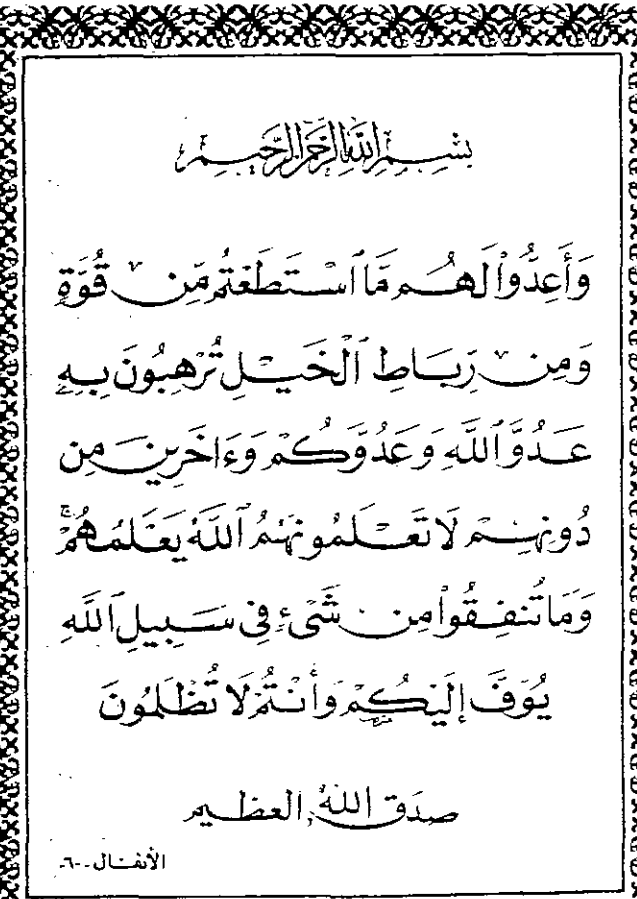 بِسْمِ اللَّهِ الرَّحْمَنِ الرَّحِيمِ
وَأَعِدُّوا۟ لَهُم مَّا ٱسْتَطَعْتُم مِّن قُوَّةٍ
وَمِن رِّبَاطِ ٱلْخَيْلِ تُرْهِبُونَ بِهِۦ
عَدُوَّ ٱللَّهِ وَعَدُوَّكُمْ وَءَاخَرِينَ مِن
دُونِهِمْ لَا تَعْلَمُونَهُمُ ٱللَّهُ يَعْلَمُهُمْ ۚ
وَمَا تُنفِقُوا۟ مِن شَىْءٍ فِى سَبِيلِ ٱللَّهِ
يُوَفَّ إِلَيْكُمْ وَأَنتُمْ لَا تُظْلَمُونَ
صدق الله العظيم
الأنفال -٦٠-